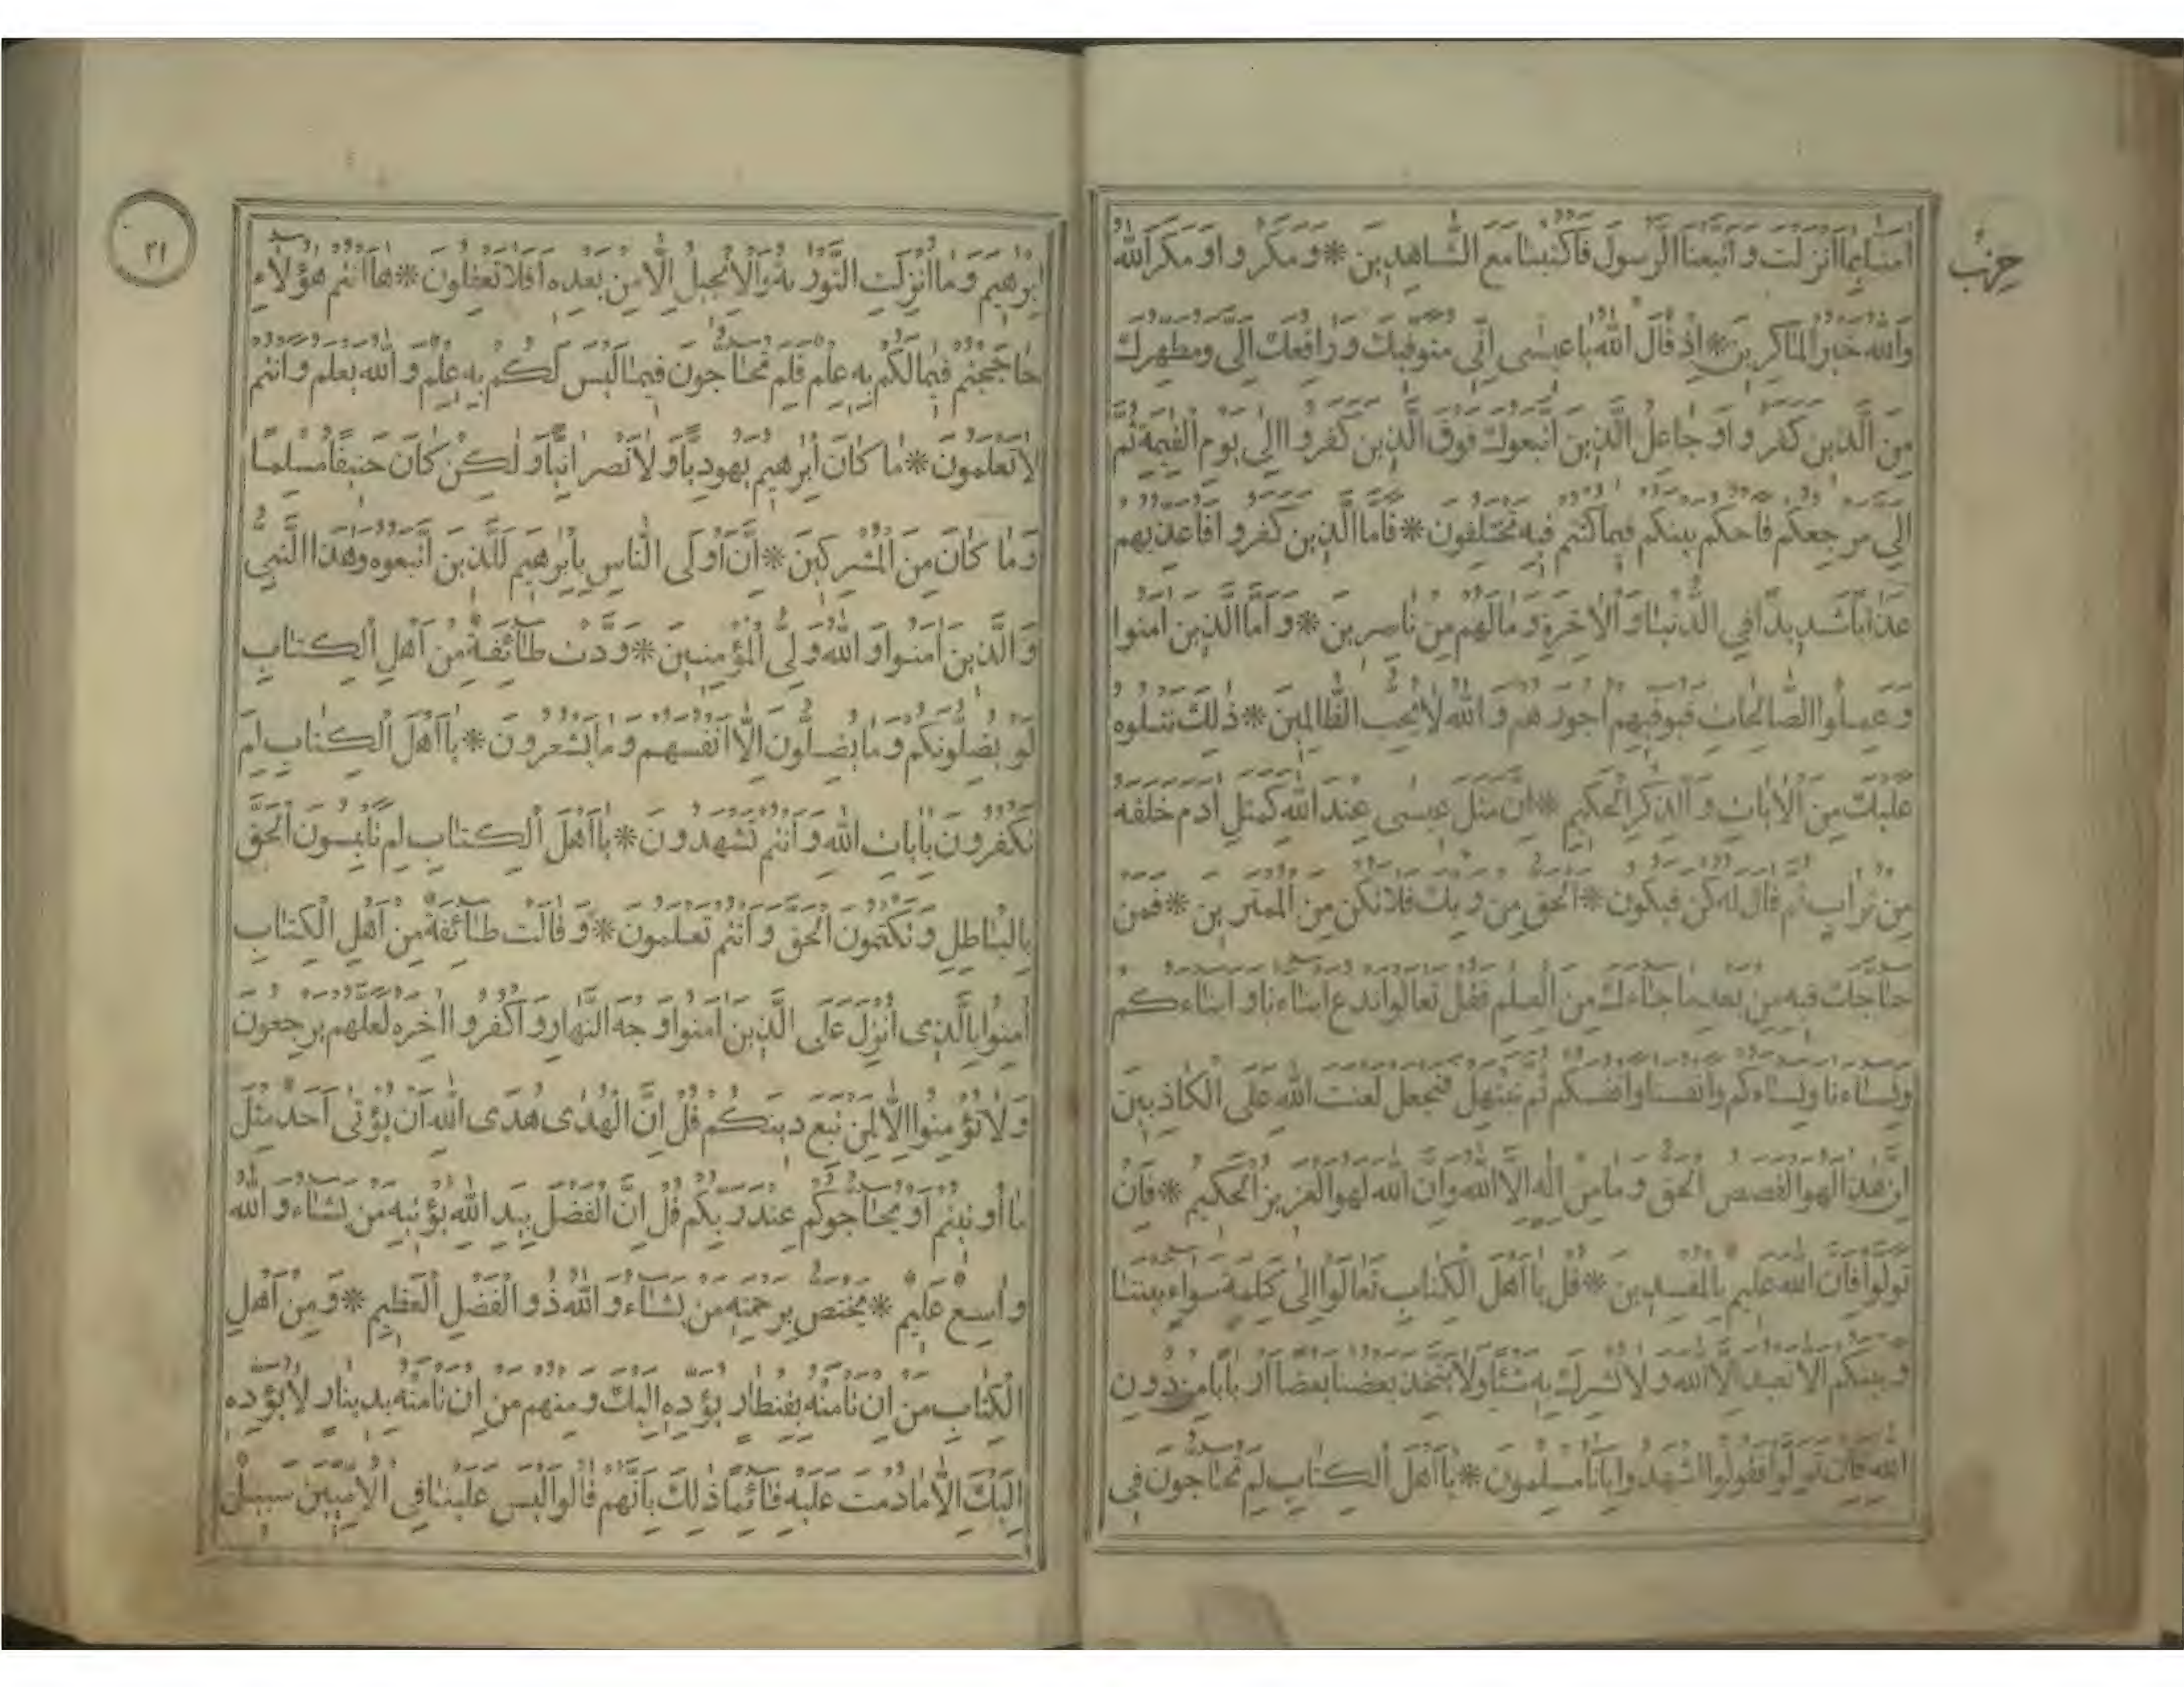 حزب
امنا بما انزلت و اتبعنا الرسول فاكتبنا مع الشاهدين * و مكروا و مكر الله
والله خير الماكرين * اذ قال الله يا عيسى اني متوفيك و رافعك الي و مطهرك
من الذين كفروا و جاعل الذين اتبعوك فوق الذين كفروا الى يوم القيمة ثم
الي مرجعكم فاحكم بينكم فيما كنتم فيه تختلفون * فاما الذين كفروا فاعذبهم
عذابا شديدا في الدنيا و الاخرة و مالهم من ناصرين * و اما الذين امنوا
و عملوا الصالحات فيوفيهم اجورهم و الله لا يحب الظالمين * ذلك نتلوه
عليك من الايات و الذكر الحكيم * ان مثل عيسى عند الله كمثل ادم خلقه
من تراب ثم قال له كن فيكون * الحق من ربك فلا تكن من الممترين * فمن
حاجك فيه من بعد ما جاءك من العلم فقل تعالوا ندع ابناءنا و ابناءكم
ونساءنا ونساءكم وانفسنا وانفسكم ثم نبتهل فنجعل لعنت الله على الكاذبين
ان هذا لهو القصص الحق و ما من اله الا الله وان الله لهو العزيز الحكيم * فان
تولوا فان الله عليم بالمفسدين * قل يا اهل الكتاب تعالوا الى كلمة سواء بيننا
و بينكم الا نعبد الا الله و لا نشرك به شيئا ولا يتخذ بعضنا بعضا اربابا من دون
الله فان تولوا فقولوا اشهدوا بانا مسلمون * يا اهل الكتاب لم تحاجون في
٢١
ابرهيم و ما انزلت التورية والانجيل الا من بعده افلا تعقلون * ها انتم هؤلاء
حاججتم فيما لكم به علم فلم تحاجون فيما ليس لكم به علم و الله يعلم و انتم
لا تعلمون * ما كان ابرهيم يهوديا و لا نصرانيا و لكن كان حنيفا مسلما
و ما كان من المشركين * ان اولى الناس بابرهيم للذين اتبعوه وهذا النبي
و الذين امنوا و الله ولي المؤمنين * ودت طائفة من اهل الكتاب
لو يضلونكم و ما يضلون الا انفسهم و ما يشعرون * يا اهل الكتاب لم
تكفرون بايات الله و انتم تشهدون * يا اهل الكتاب لم تلبسون الحق
بالباطل و تكتمون الحق و انتم تعلمون * و قالت طائفة من اهل الكتاب
امنوا بالذي انزل على الذين امنوا وجه النهار و اكفروا اخره لعلهم يرجعون
و لا تؤمنوا الا لمن تبع دينكم قل ان الهدى هدى الله ان يؤتى احد مثل
ما اوتيتم او يحاجوكم عند ربكم قل ان الفضل بيد الله يؤتيه من يشاء و الله
واسع عليم * يختص برحمته من يشاء و الله ذو الفضل العظيم * و من اهل
الكتاب من ان تامنه بقنطار يؤده اليك و منهم من ان تامنه بدينار لا يؤده
اليك الا ما دمت عليه قائما ذلك بانهم قالوا ليس علينا في الاميين سبيل